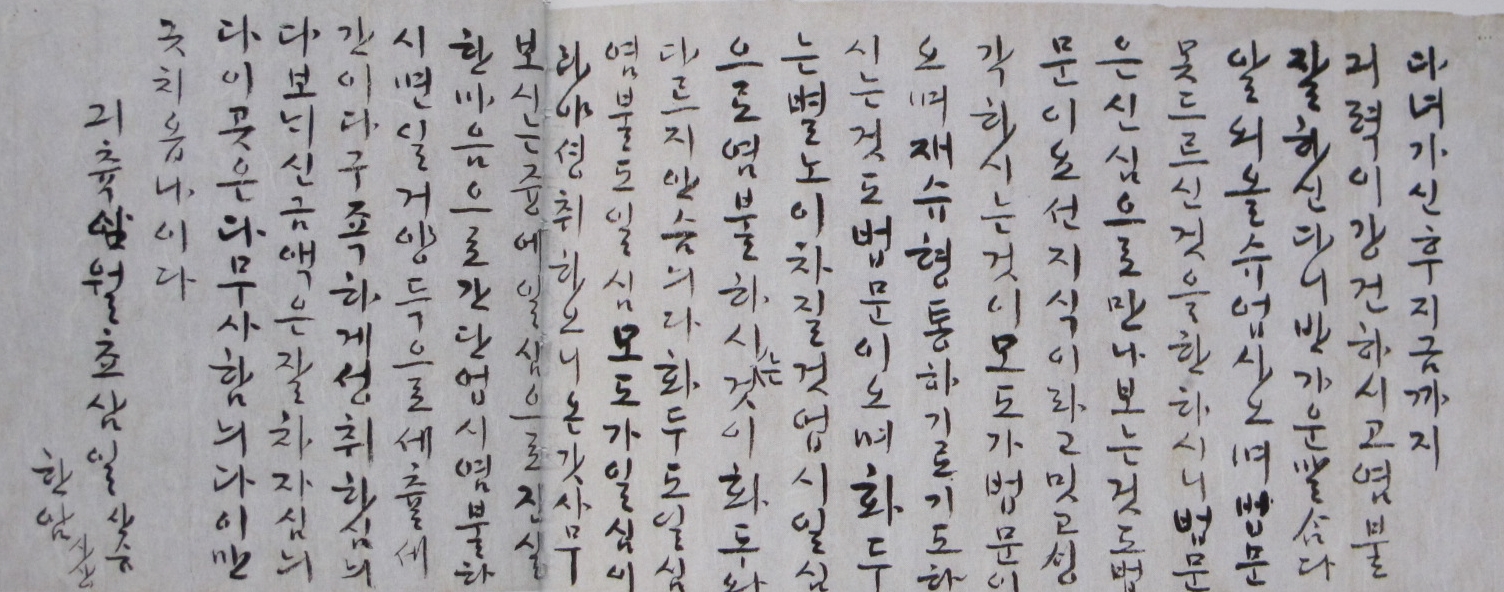 다녀가신후지금까지
긔력이강건하시고염불
잘하신다니반가운말삼다
알외올슈업사오며법문
못드르신것을한하시니법문
은신심으로만나보는것도법
문이오선지식이라고밋고생
각하시는것이모도가법문이
오며재슈형통하기로기도하
시는것도법문이오며화두
는별노이차질것업시일심
으로염불하시는것이화두와
다르지안슴늬다화두도일심
염불도일심모도가일심이
라야셩취하오니온갓사무
보시는즁에일심으로진실
한마음으로간단업시염불하
시면일거양득으로세츌세
간이다구죡하게성취하심늬
다보늬신금액은잘차자심늬
다이곳은다무사함늬다이만
긋치옵나이다
긔츅삼월초삼일 산승
한암